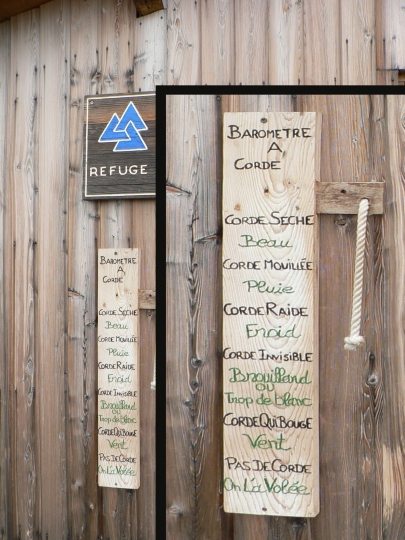 REFUGE
BAROMETRE
A
CORDE
CORDE SECHE
Beau
CORDE MOUILLÉE
Pluie
CORDE RAIDE
Froid
CORDE INVISIBLE
Brouillard
ou
Trop de blanc
CORDE QUI BOUGE
Vent
PAS DE CORDE
On L'a Volée
BAROMETRE
A
CORDE
CORDE SECHE
Beau
CORDE MOUILLÉE
Pluie
CORDE RAIDE
Froid
CORDE INVISIBLE
Brouillard
ou
Trop de blanc
CORDE QUI BOUGE
Vent
PAS DE CORDE
On L'a Volée